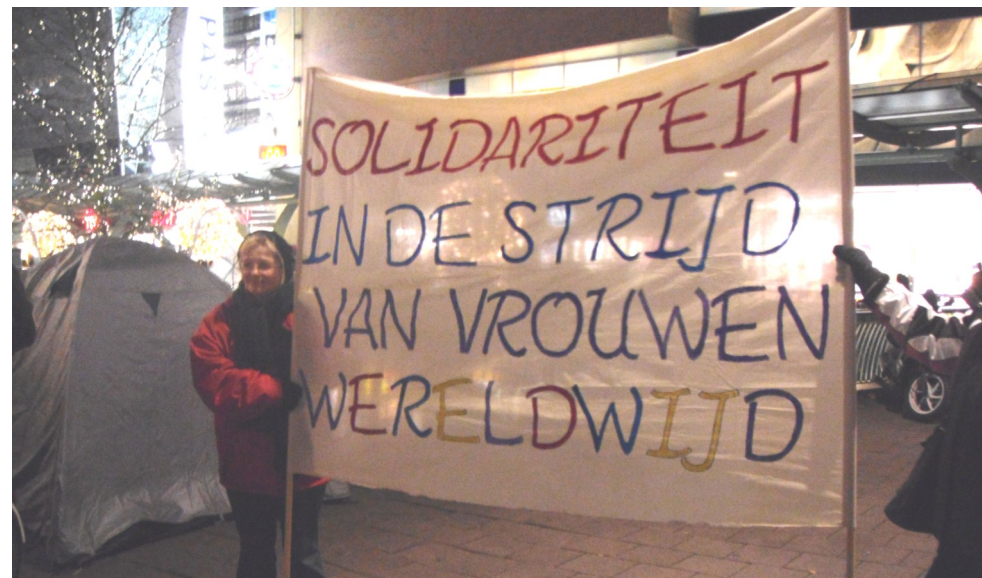 SOLIDARITEIT
IN DE STRIJD
VAN VROUWEN
WERELDWIJD
PAS